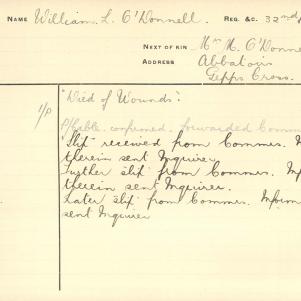 NAME William L. O'Donnell. REG. &C. 32nd
NEXT OF KIN Mr M. O'Donne
ADDRESS Abbatoirs
Gepps Cross.
1/P "Died of Wounds".
P/Cable. confirmed. forwarded Comm
Slip received from Commrs.
therein sent Inquirer.
Further slip from Commrs. Inf
therein sent Inquirer.
Later slip from Commrs. Inform
sent Inquirer